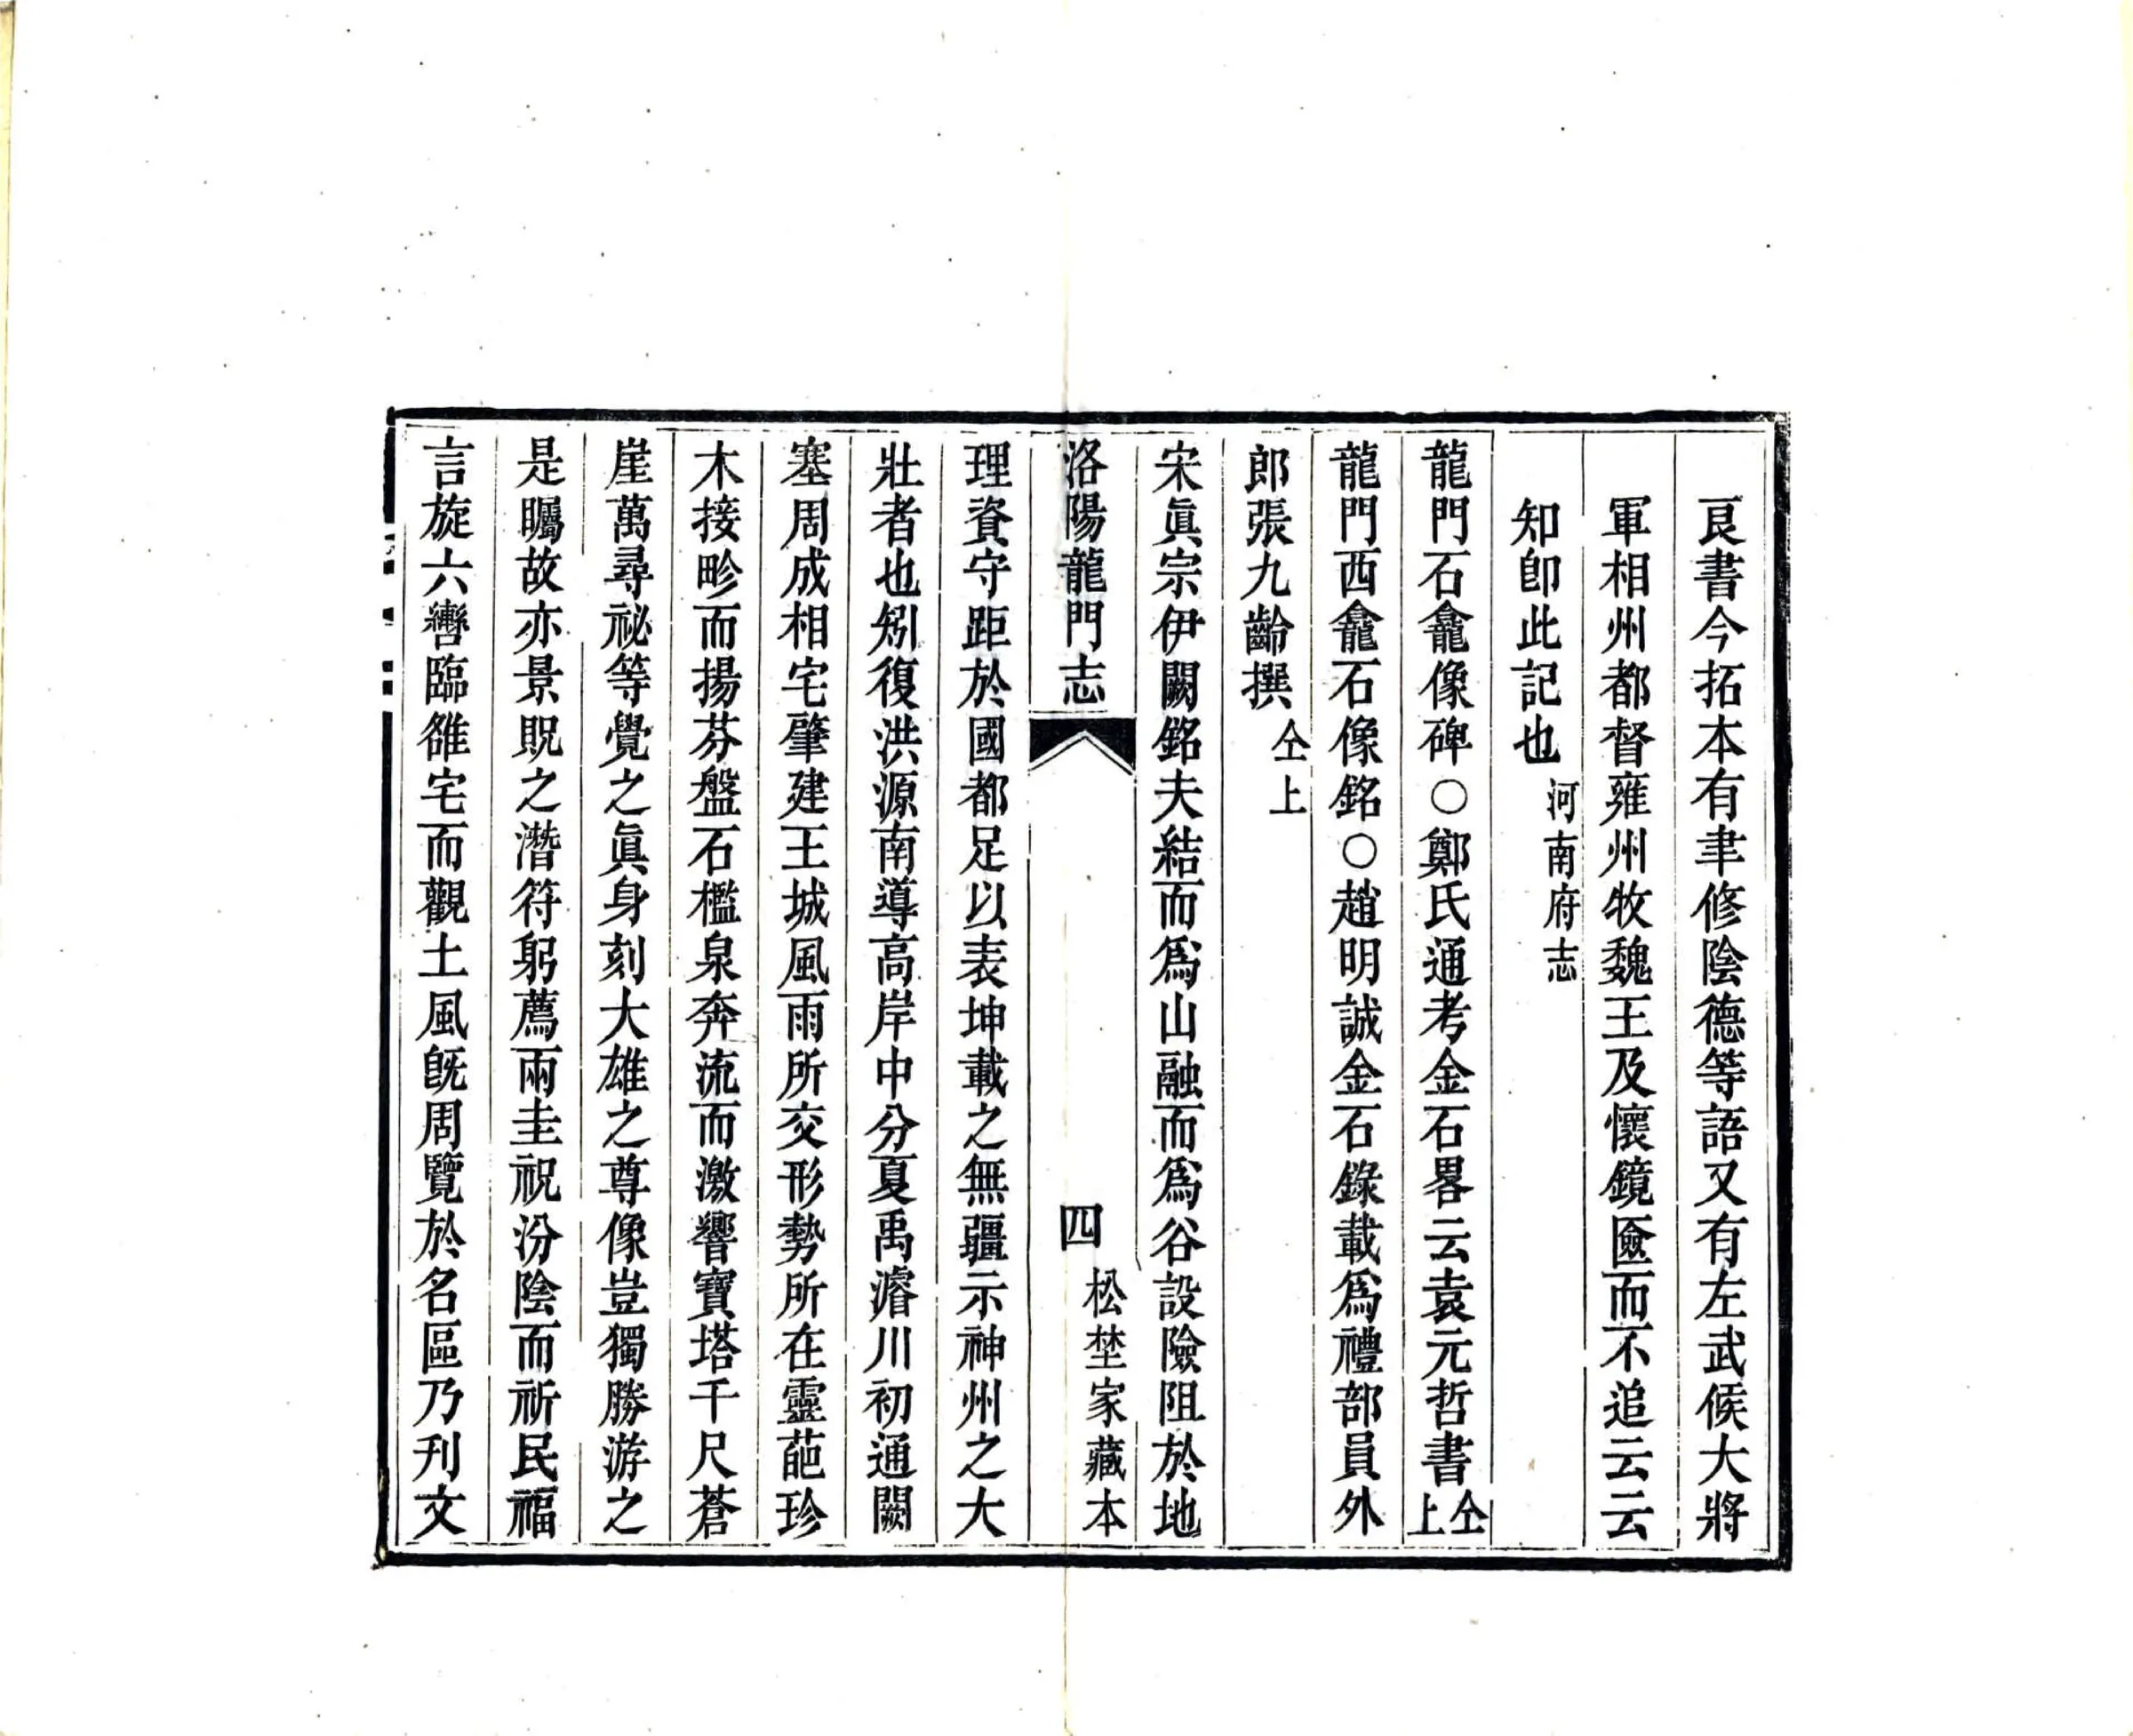 㫐書今拓本有聿修陰德等語又有左武候大將
軍相州都督雍州牧魏王及懷鏡匳而不追云云
知卽此記也河南府志
龍門石龕像碑〇鄭氏通考金石畧云袁元哲書仝上
龍門西龕石像銘〇趙明誠金石錄載爲禮部員外
郎張九齡撰仝上
宋眞宗伊闕銘夫結而爲山融而爲谷設險阻於地
洛陽龍門志 四 松埜家藏本
理資守距於國都足以表坤載之無疆示神州之大
壯者也矧復洪源南導高岸中分夏禹濬川初通闕
塞周成相宅肇建王城風雨所交形勢所在靈葩珍
木接畛而揚芬盤石檻泉奔流而激響寶塔千尺蒼
崖萬尋祕等覺之眞身刻大雄之尊像豈獨勝游之
是矚故亦景貺之潛符躬薦兩圭祝汾陰而祈民福
言旋六轡臨雒宅而觀土風旣周覽於名區乃刋文